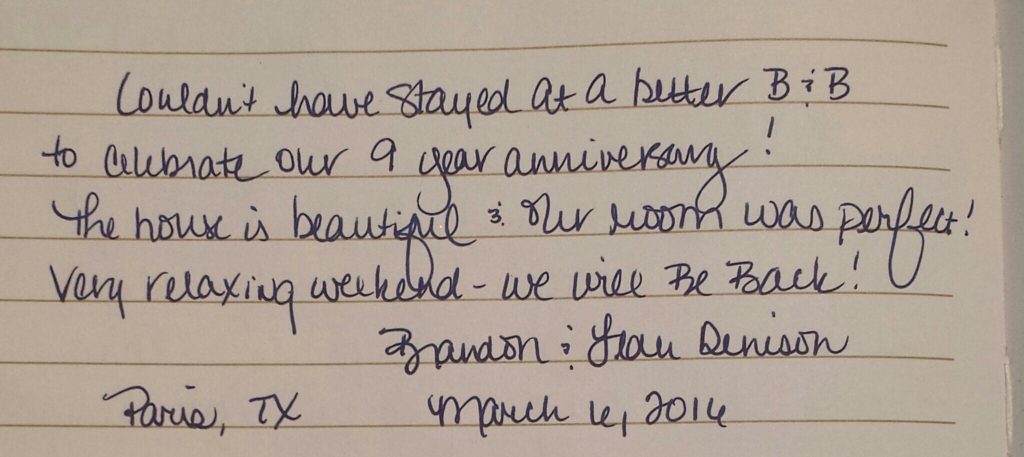 Couldn't have stayed at a better B & B
to celebrate our 9 year anniversary!
The house is beautiful & our room was perfect!
Very relaxing weekend - we will Be Back!
Brandon & Denison
Paris, TX March 6, 2016